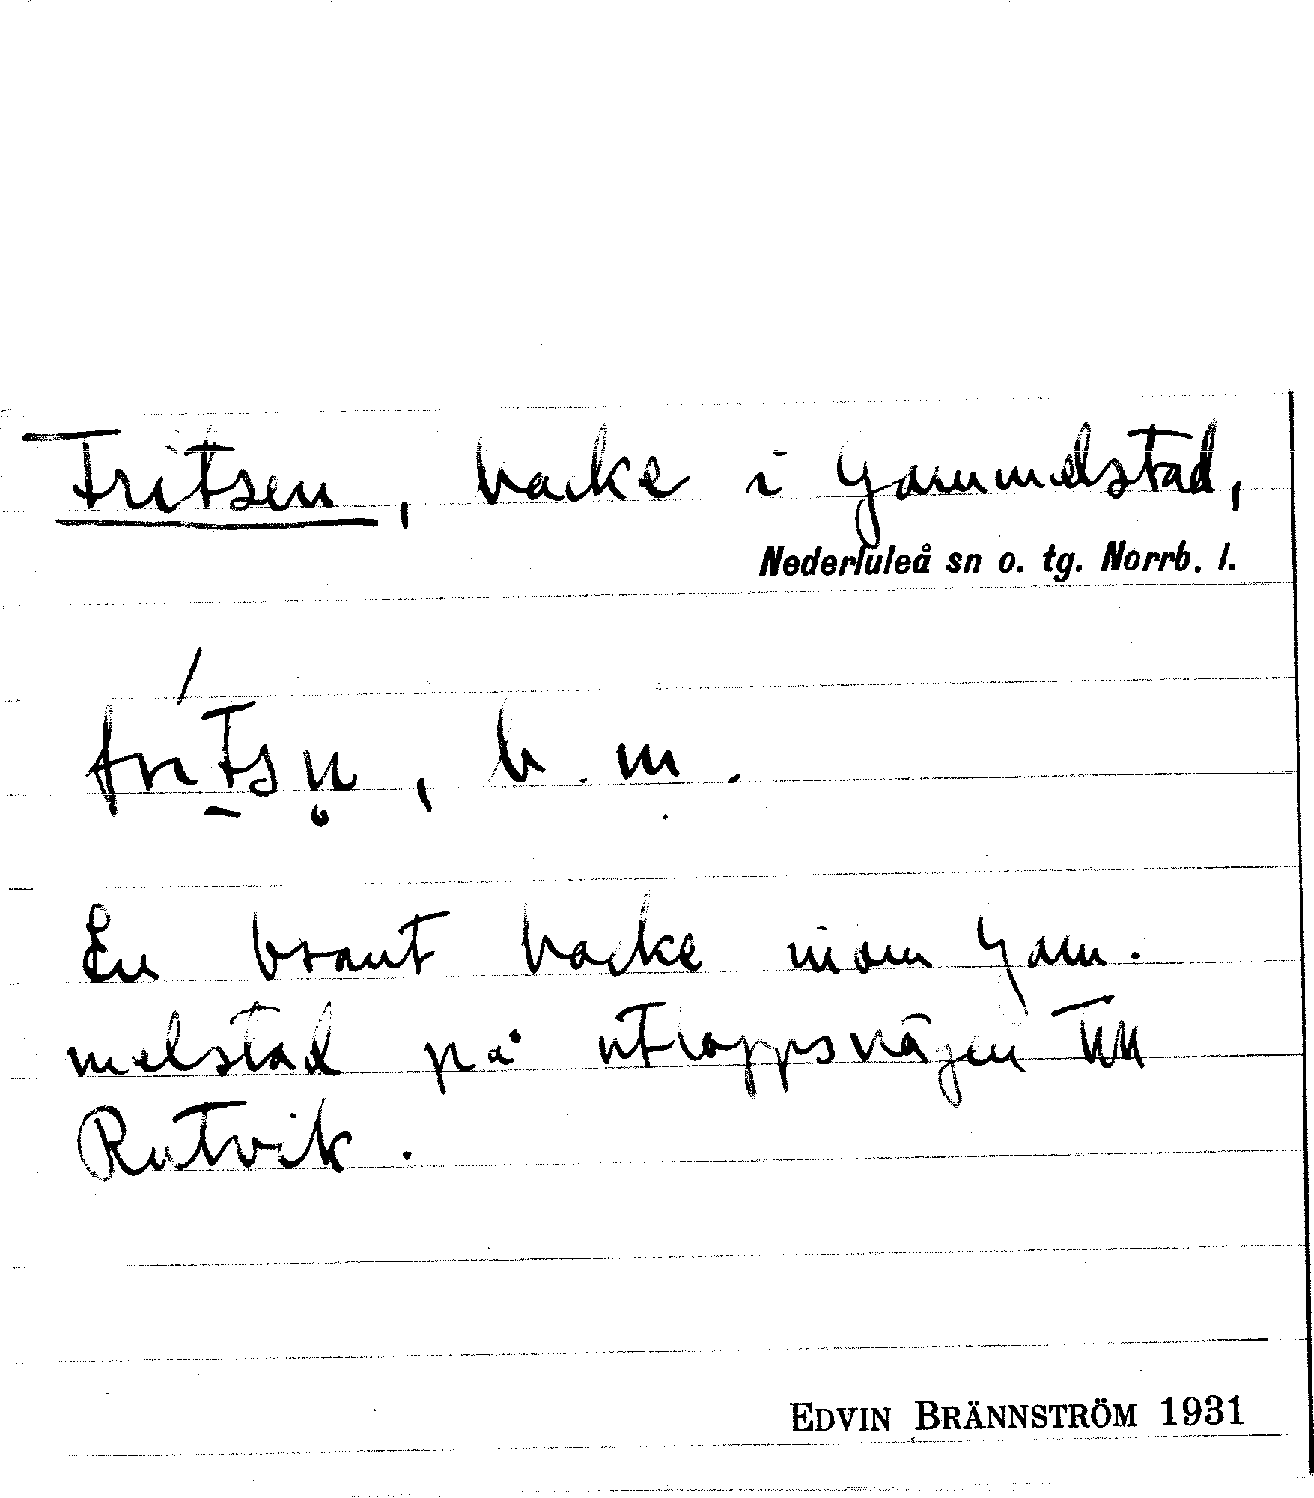 Fritsen, backe i Gammelstad,
Nederluleå sn o. tg. Norrb. l.
frítsn̥, b. m.
En brant backe inom Gam-
melstad på utloppsvägen till
Rutvik.
EDVIN BRÄNNSTRÖM 1931